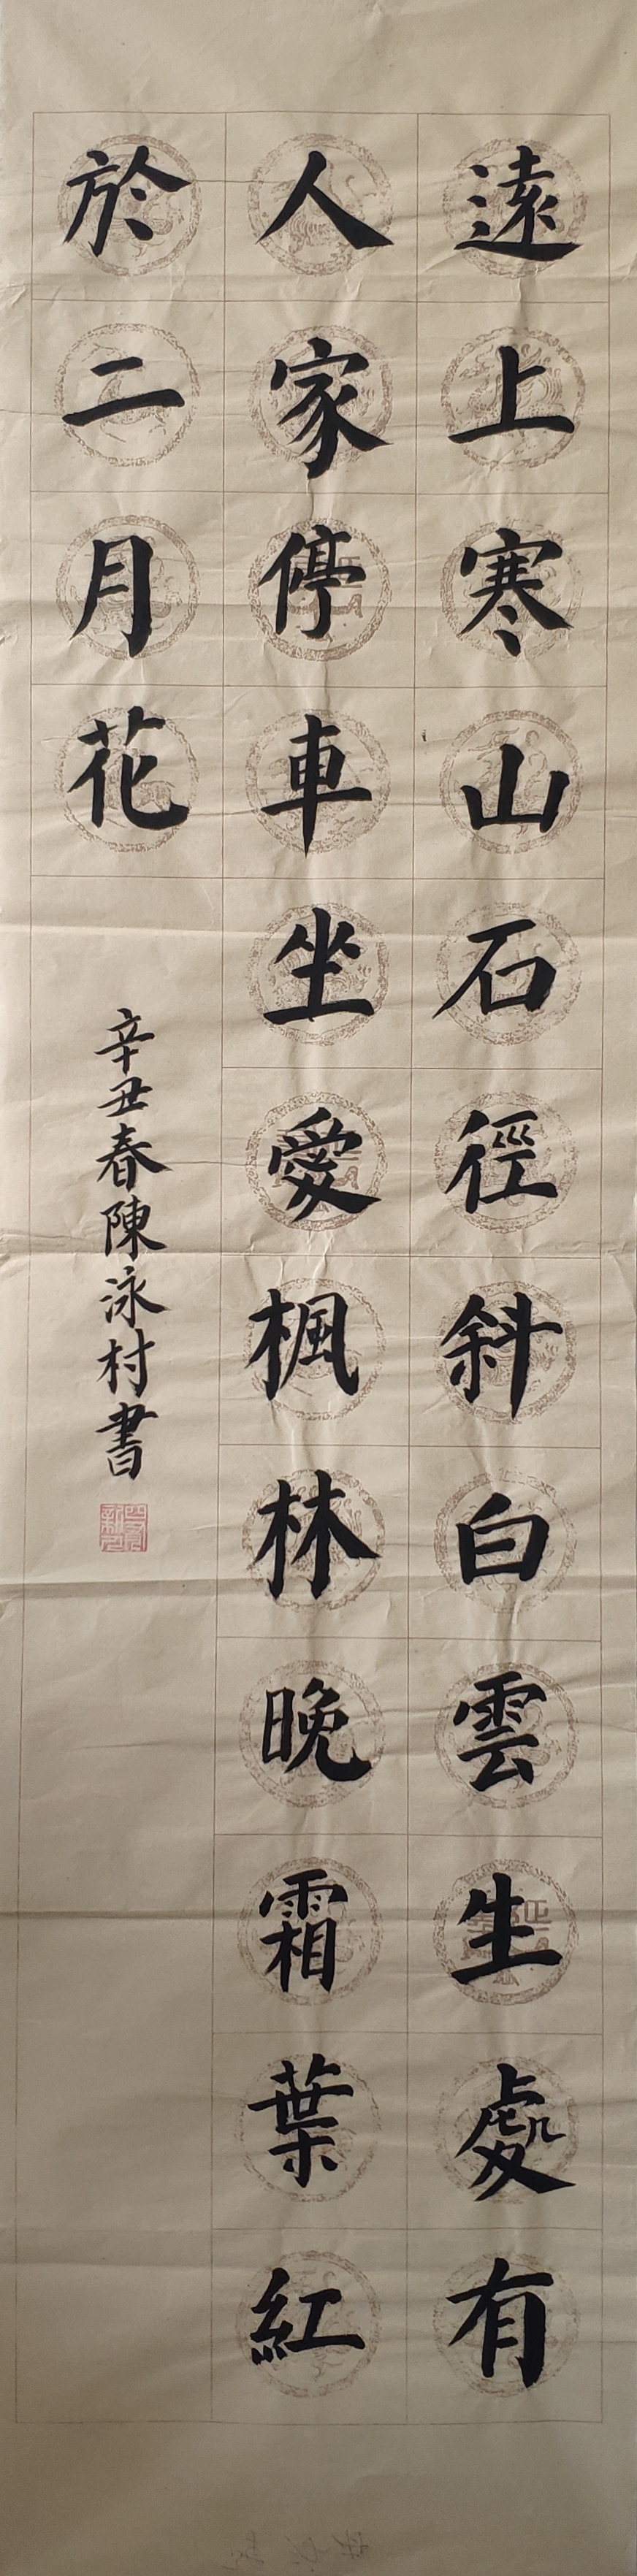 遠上寒山石徑斜白雲生處有
人家停車坐愛楓林晚霜葉紅
於二月花
辛丑春陳泳村書